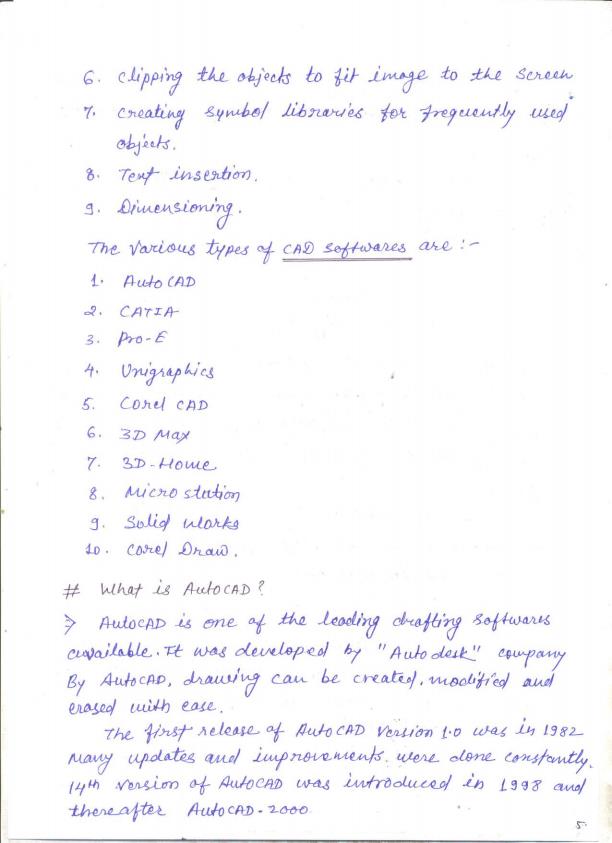 6. Clipping the objects to fit image to the screen
7. Creating symbol libraries for frequently used
objects.
8. Text insertion.
9. Dimensioning.
The various types of CAD softwares are :-
1. AutoCAD
2. CATIA
3. Pro-E
4. Unigraphics
5. Corel CAD
6. 3D Max
7. 3D-Home
8. Micro station
9. Solid Works
10. Corel Draw.
# What is AutoCAD?
⇒ AutoCAD is one of the leading drafting softwares
available. It was developed by "Autodesk" company
By AutoCAD, drawing can be created, modified and
erased with ease.
The first release of AutoCAD Version 1.0 was in 1982
Many updates and improvements were done constantly.
14th version of AutoCAD was introduced in 1998 and
thereafter AutoCAD-2000
5.